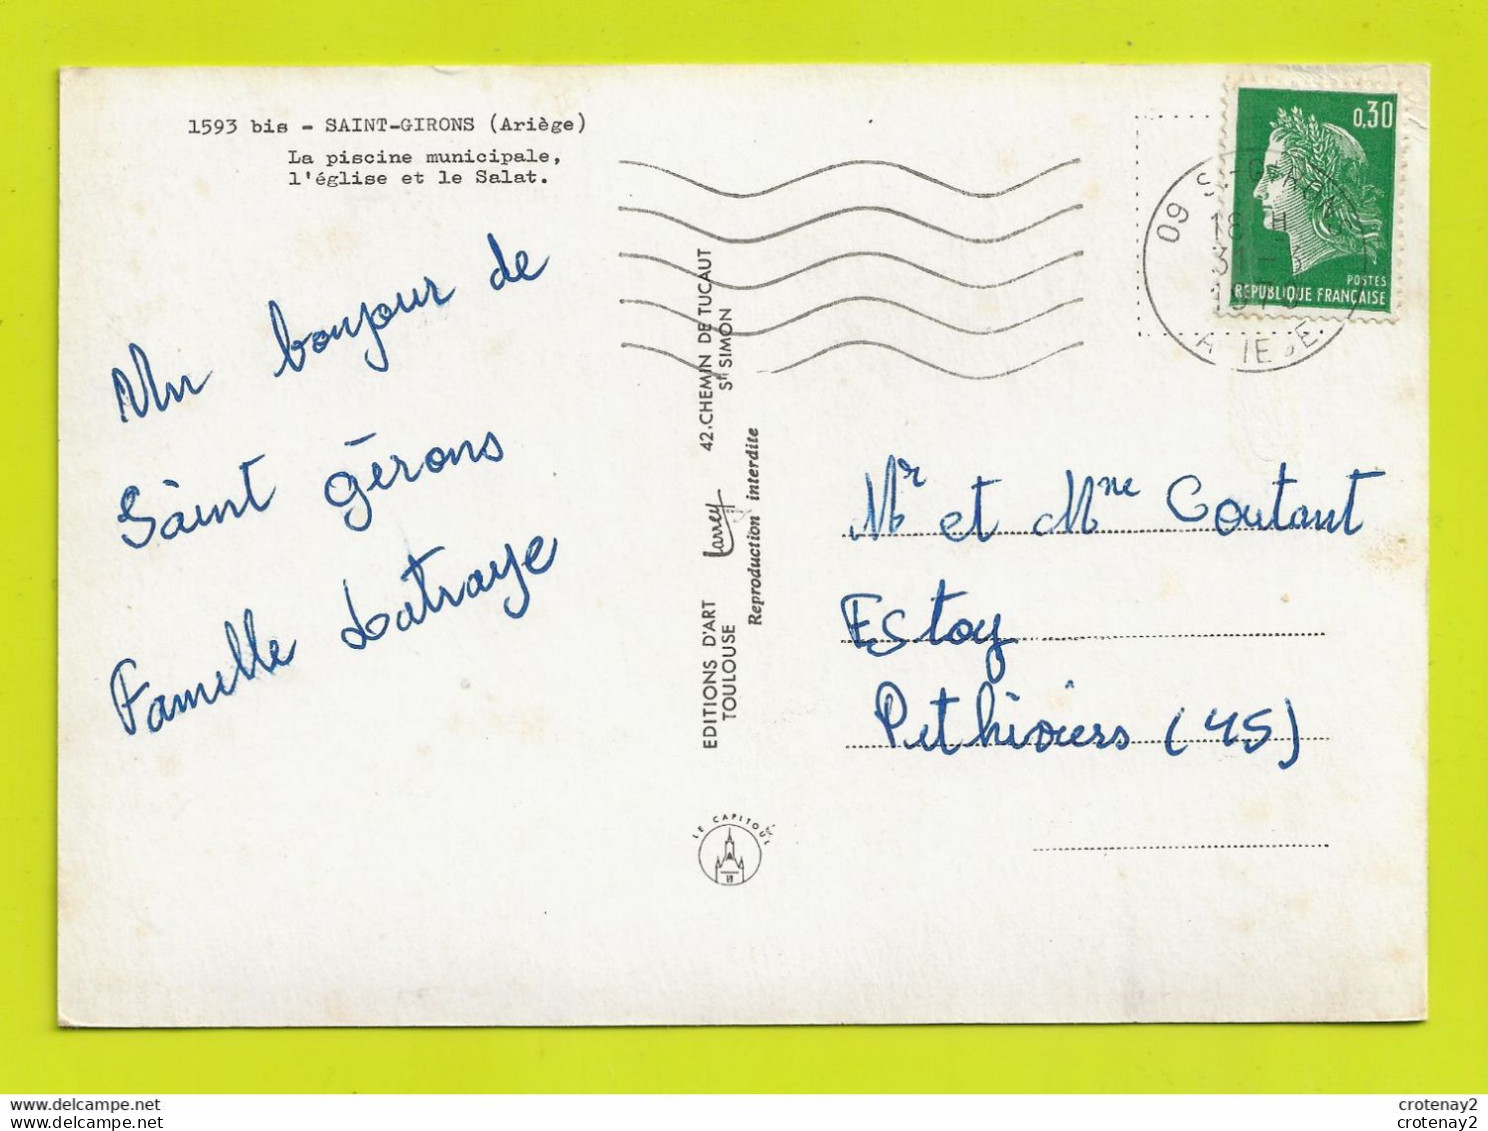 1593 bis - SAINT-GIRONS (Ariège)
La piscine municipale,
l'église et le Salat.
Un bonjour de
Saint Gérons
Famille Latraye
EDITIONS D'ART
TOULOUSE
Larrey
42.CHEMIN DE TUCAUT
St SIMON
Reproduction interdite
LE CAPITOUL
0,30
POSTES
REPUBLIQUE FRANÇAISE
09
18 H
31
Mr et Mme Coutant
Estoy
Pithiviers (45)
www.delcampe.net
www.delcampe.net
crotenay2
crotenay2